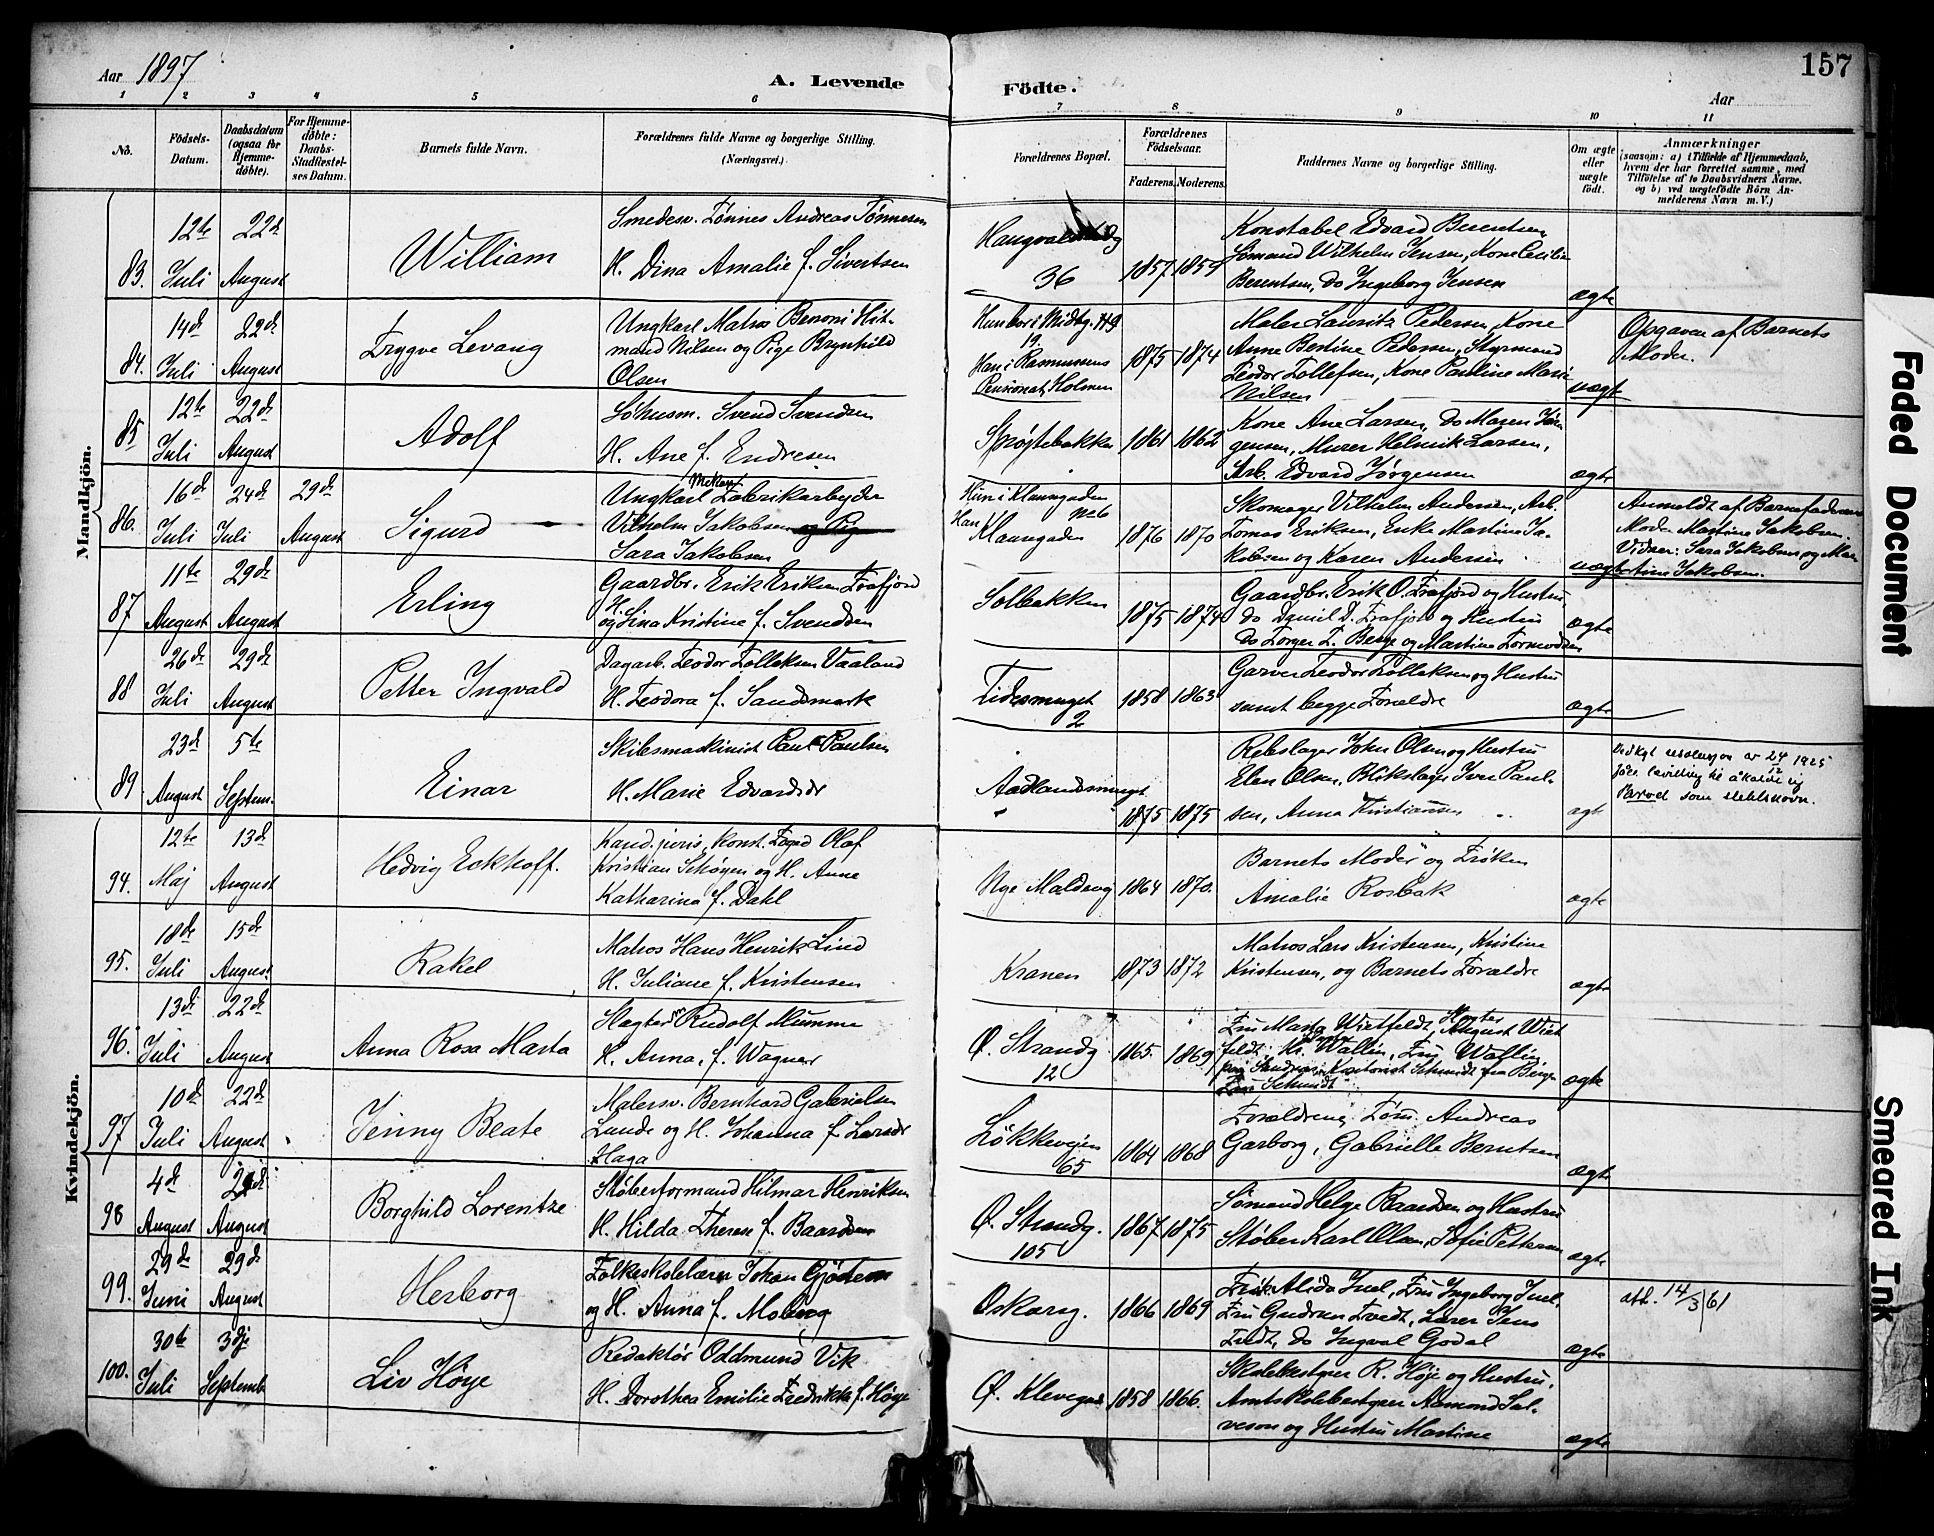 Aar 1897
A. Levende
Födte.
Aar
157
1 2 3 4 5 6 7 8 9 10 11
No.
Födsels-
Datum.
Daabsdatum
(ogsaa for
Hjemme-
döbte).
For Hjemme-
döbte:
Daabs-
Stadfæstel-
ses Datum.
Barnets fulde Navn.
Forældrenes fulde Navne og borgerlige Stilling.
(Næringsvei.)
Forældrenes Bopæl.
Forældrenes
Födselsaar.
Faderens. Moderens.
Faddernes Navne og borgerlige Stilling.
Om ægte
eller
uægte
födt.
Anmærkninger
(saasom: a) i Tilfælde af Hjemmedaab,
hvem der har forrettet samme, med
Tilföielse af to Daabsvidners Navne.
og b) ved uægtefödte Börn An-
melderens Navn m. V.)
Mandkjön.
83.
12te Juli
22de August
William
Smedesv. Tönnes Andreas Tönnesen
H. Dina Amalie f. Sivertsen
36
1857 1859
Konstabel Edvard Berentsen
Sömand Wilhelm Jensen, Kone Cecilie
Berentsen, Do Ingeborg Jensen
ægte
84.
14de Juli
22de August
Trygve Levang
Ungkarl Matros Benoni Hit-
mand Nilsen og Pige Brynhild
Olsen
Hun bor i Midtg. 49
19.
Han i Rasmussens
Pensionat, Holmen
1875 1874
Maler Lauritz Pedersen, Kone
Anne Bertine Pedersen, Styrmand
Teodor Tollefsen, Kone Pauline Marie
Nilsen
uægte
Opgaven af Barnets
Moder.
85
12te Juli
22de August
Adolf
Söhusm. Svend Svendsen
H. Ane f. Endresen
Spröjtebakken
1861 1862
Kone Ane Larsen, Do Maren Jör-
gensen, Murer Helmik Larsen,
Arb. Edvard Jörgensen
ægte
86.
16de Juli
24de Juli
29de August
Sigurd
Ungkarl Mekan. Fabrikarbejder
Vilhelm Jakobsen og Pig
Sara Jakobsen
Hun i Klauugaden
No 6
Han Klauugaden
1876 1870
Skomager Vilhelm Andersen, Arb.
Tomas Eriksen, Enke Martine Ja-
kobsen og Karen Andersen
uægte
Anmeldt af Barnefaderens
Moder Martine Jakobsen.
Vidner: Sara Jakobsen og Mar-
tine Jakobsen.
87
11te August
29de August
Erling
Gaardbr. Erik Eriksen Frafjord
H.
og Lina Kristine f. Svendsen
Solbakken
1875 1874
Gaardbr. Erik O. Frafjord og Hustru
do Daniel D. Frafjord og Hustru
Do Torger T. Berge og Martine Tormodsen
ægte
88
26de Juli
29de August
Petter Ingvald
Dagarb. Teodor Tollaksen Vaaland
H. Teodora f. Sandsmark
Tidesmuget
2
1858 1863
Garver Teodor Tollaksen og Hustru
samt begge Forældre
ægte
89
23de August
5te Septem.
Einar
Skibsmaskinist Paul Paulsen
H. Marie Edvardsdr
Aadlandsmuget
1875 1875
Rebslager John Olsen og Hustru
Elen Olsen, Blikslager Iver Paul-
sen, Anna Kristiansen
ægte
Ved Kgl resolusjon av 24/12 1925
bevilling til å kalde sig
Parvel som slektsnavn.
Kvindekjön.
94.
12te Maj
13de August
Hedvig Eckhoff.
Kand. juris, Konst. Foged Olaf
Kristian Schöyen og H. Anne
Katharina f. Dahl
Nye Maldevg
1864 1870.
Barnets Moder og Fröken
Amalie Rosbak
ægte
95.
18de Juli
15de August
Rakel
Matros Hans Henrik Lind
H. Juliane f. Kristensen
Kranen
1873 1872
Matros Lars Kristensen, Kristine
Kristensen, og Barnets Forældre
ægte
96.
13de Juli
22de August
Anna Rosa Marta
Slagter Rudolf Mumme
H. Anna, f. Wagner
Ø. Strandg.
12
1865. 1869
Fru Marta Wietfeldt, Slagter August Wiet-
feldt, Hr. Wallin, Fru Wallin
fra Sandnes, Kontorist Schmidt fra Bergen
Fru Schmidt
ægte
97
10de Juli
22de August
Jenny Beate
Malersv. Bernhard Gabrielsen
Lunde og H. Johanna f. Larsdr
Haga
Lökkevejen
65
1864 1868
Forældrene, Töm. Andreas
Garborg, Gabrielle Berntsen
ægte
98
4de August
August
Borghild Lorentze
Stöberformand Hilmar Henriksen
H. Hilda Therese f. Baardsen
Ø. Strandg.
105
1867 1875
Sömand Helge Baardsen og Hustru
Stöber Karl Olsen, Sofie Pettersen
ægte
99.
29de Juni
29de August
Herborg
Folkeskolelærer Johan Gjöstein
og H. Anna f. Moberg
Oskarsg.
1866 1869
Frk. Alida Juel, Fru Ingeborg Juel,
Fru Gudrun Tvedt, Lærer Jens
Tvedt, do Ingval Godal
ægte
att. 14/3 61
100.
30te Juli
3dje Septemb
Liv Höye
Redaktör Oddmund Vik
H. Dorothea Emilie Fredrikke f. Höye
Ø. Klevegade
1858 1866.
Skolebestyrer R. Höje og Hustru,
Amtsskolebestyrer Aamond Sal-
veson og Hustru Martine
ægte
Faded Document
Smeared Ink